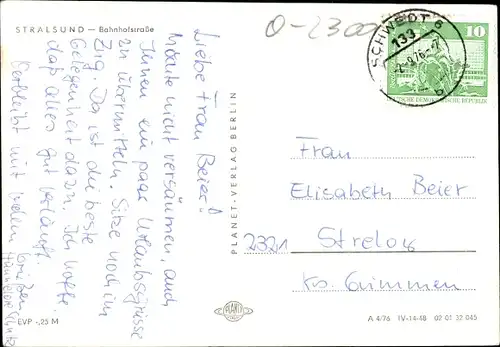 STRALSUND – Bahnhofstraße
0-2300
SCHWEDT 6
133
10
DEUTSCHE DEMOKRATISCHE REPUBLIK
Liebe Frau Beier!
Möchte nicht versäumen, auch
Ihnen ein paar Urlaubsgrüsse
zu übermitteln. Sitze noch im
Zug. Da ist die beste
Gelegenheit dazu. Ich hoffe
daß alles gut verläuft.
Verbleibt mit vielen Grüßen
Hannelore
PLANET-VERLAG BERLIN
Frau
Elisabeth Beier
2321 Strelow
Krs. Grimmen
PLANET
EVP -,25 M
A 4/76 IV-14-48 02 01 32 045